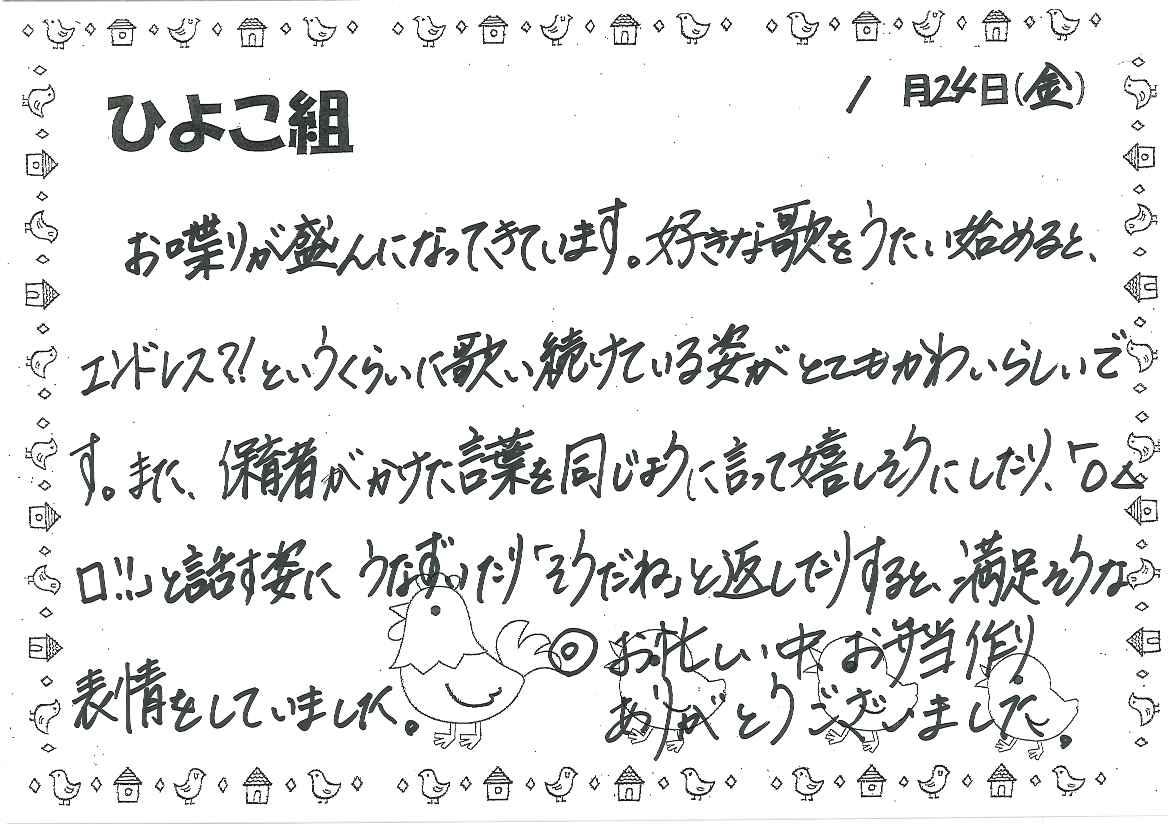 ひよこ組
1月24日(金)
お喋りが盛んになってきています。好きな歌をうたい始めると、
エンドレス?!というくらいに歌い続けている姿がとてもかわいらしいで
す。また、保育者がかけた言葉を同じように言って嬉しそうにしたり、「○△
□!!」と話す姿に うなずいたり「そうだね」と返したりすると、満足そうな
表情をしていました。
◎お忙しい中、お弁当作り
ありがとうございました。